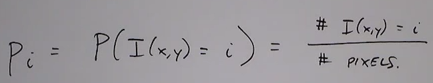 Pi = P(I(x,y) = i) = # I(x,y) = i / # PIXELS.